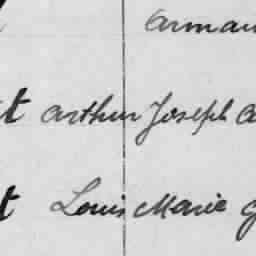 arman
t arthur Joseph a
t Louis Marie g